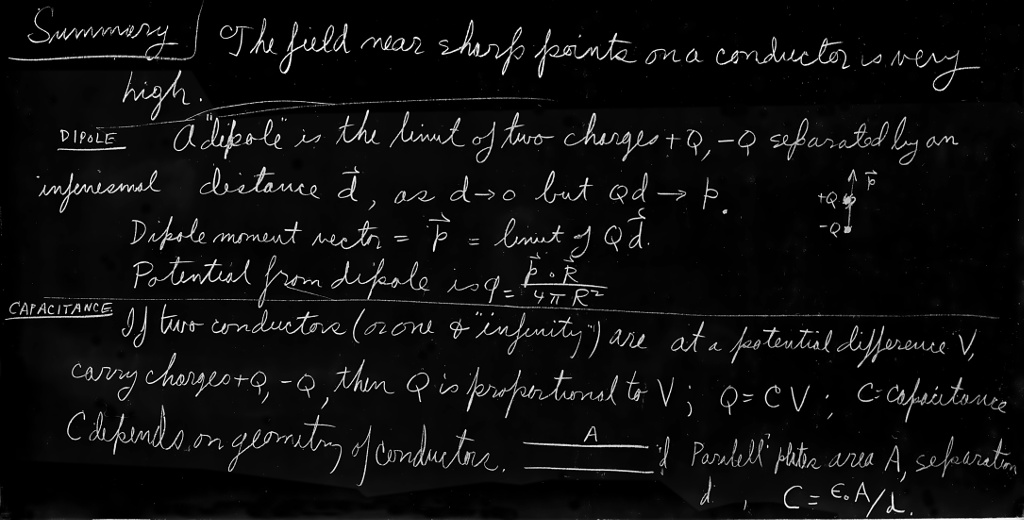 Summary The field near sharp points on a conductor is very
high.
DIPOLE A "dipole" is the limit of two charges +Q, -Q separated by an
infinesmal distance d⃗, as d→0 but Qd → p.
p⃗
+Q
-Q
Dipole moment vector = p⃗ = limit of Qd⃗.
Potential from dipole is φ = p⃗·R⃗ / 4πR²
CAPACITANCE If two conductors (or one & "infinity") are at a potential difference V,
carry charges +Q, -Q, then Q is proportional to V; Q = CV; C = capacitance
C depends on geometry of conductors. A d Parallell plates area A, separation
d, C = ε₀A/d.